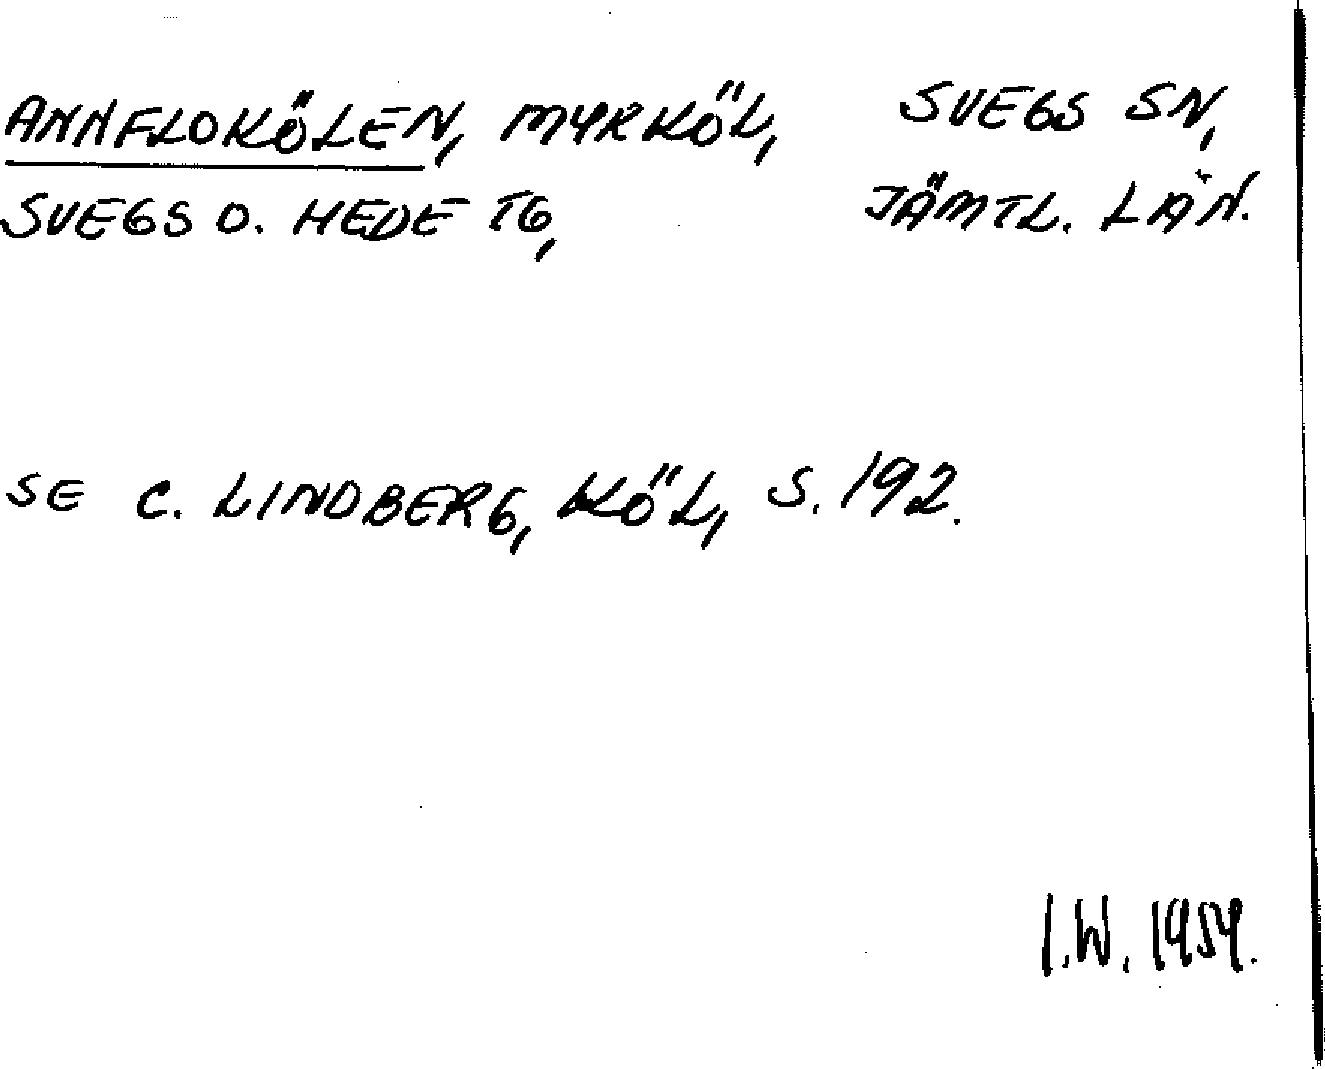 ANNFLOKÖLEN, MYRKÖL, SVEGS SN,
SVEGS O. HEDE TG, JÄMTL. LÄN.
SE C. LINDBERG, KÖL, S. 192.
I.W. 1959.